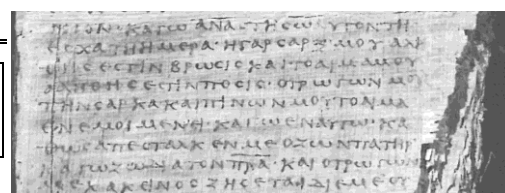 ΝΙΟΝ·ΚΑΓΩΑΝΑϹΤΗϹΩ·ΥΤΟΝΤΗ
ΕϹΧΑΤΗΗΜΕΡΑ·ΗΓΑΡϹΑΡΞ·ΜΟΥΑΛΗ
ΘΗϹΕϹΤΙΝΒΡΩϹΙϹΚΑΙΤΟΑΙΜΑΜΟΥ
ΑΛΗΘΗϹΕϹΤΙΠΟϹΙϹ·ΟΤΡΩΓΩΝΜΟΥ
ΤΗΝϹΑΡΚΑΚΑΙΠΙΝΩΝΜΟΥΤΟΑΙΜΑ
ΕΝΕΜΟΙΜΕΝΗ·ΚΑΓΩΕΝΑΥΤΩ·ΚΑ
ΘΩϹΑΠΕϹΤΑΛΚΕΝΜΕΟΖΩΝΠΑΤΗΡ
ΚΑΓΩΖΩΔΙΑΤΟΝΠ̅Ρ̅Α̅·ΚΑΙΟΤΡΩΓΩΝ
ΜΕΚΑΚΕΙΝΟϹΖΗϹΕΤΑΙΔΙΕΜΕΟΥ